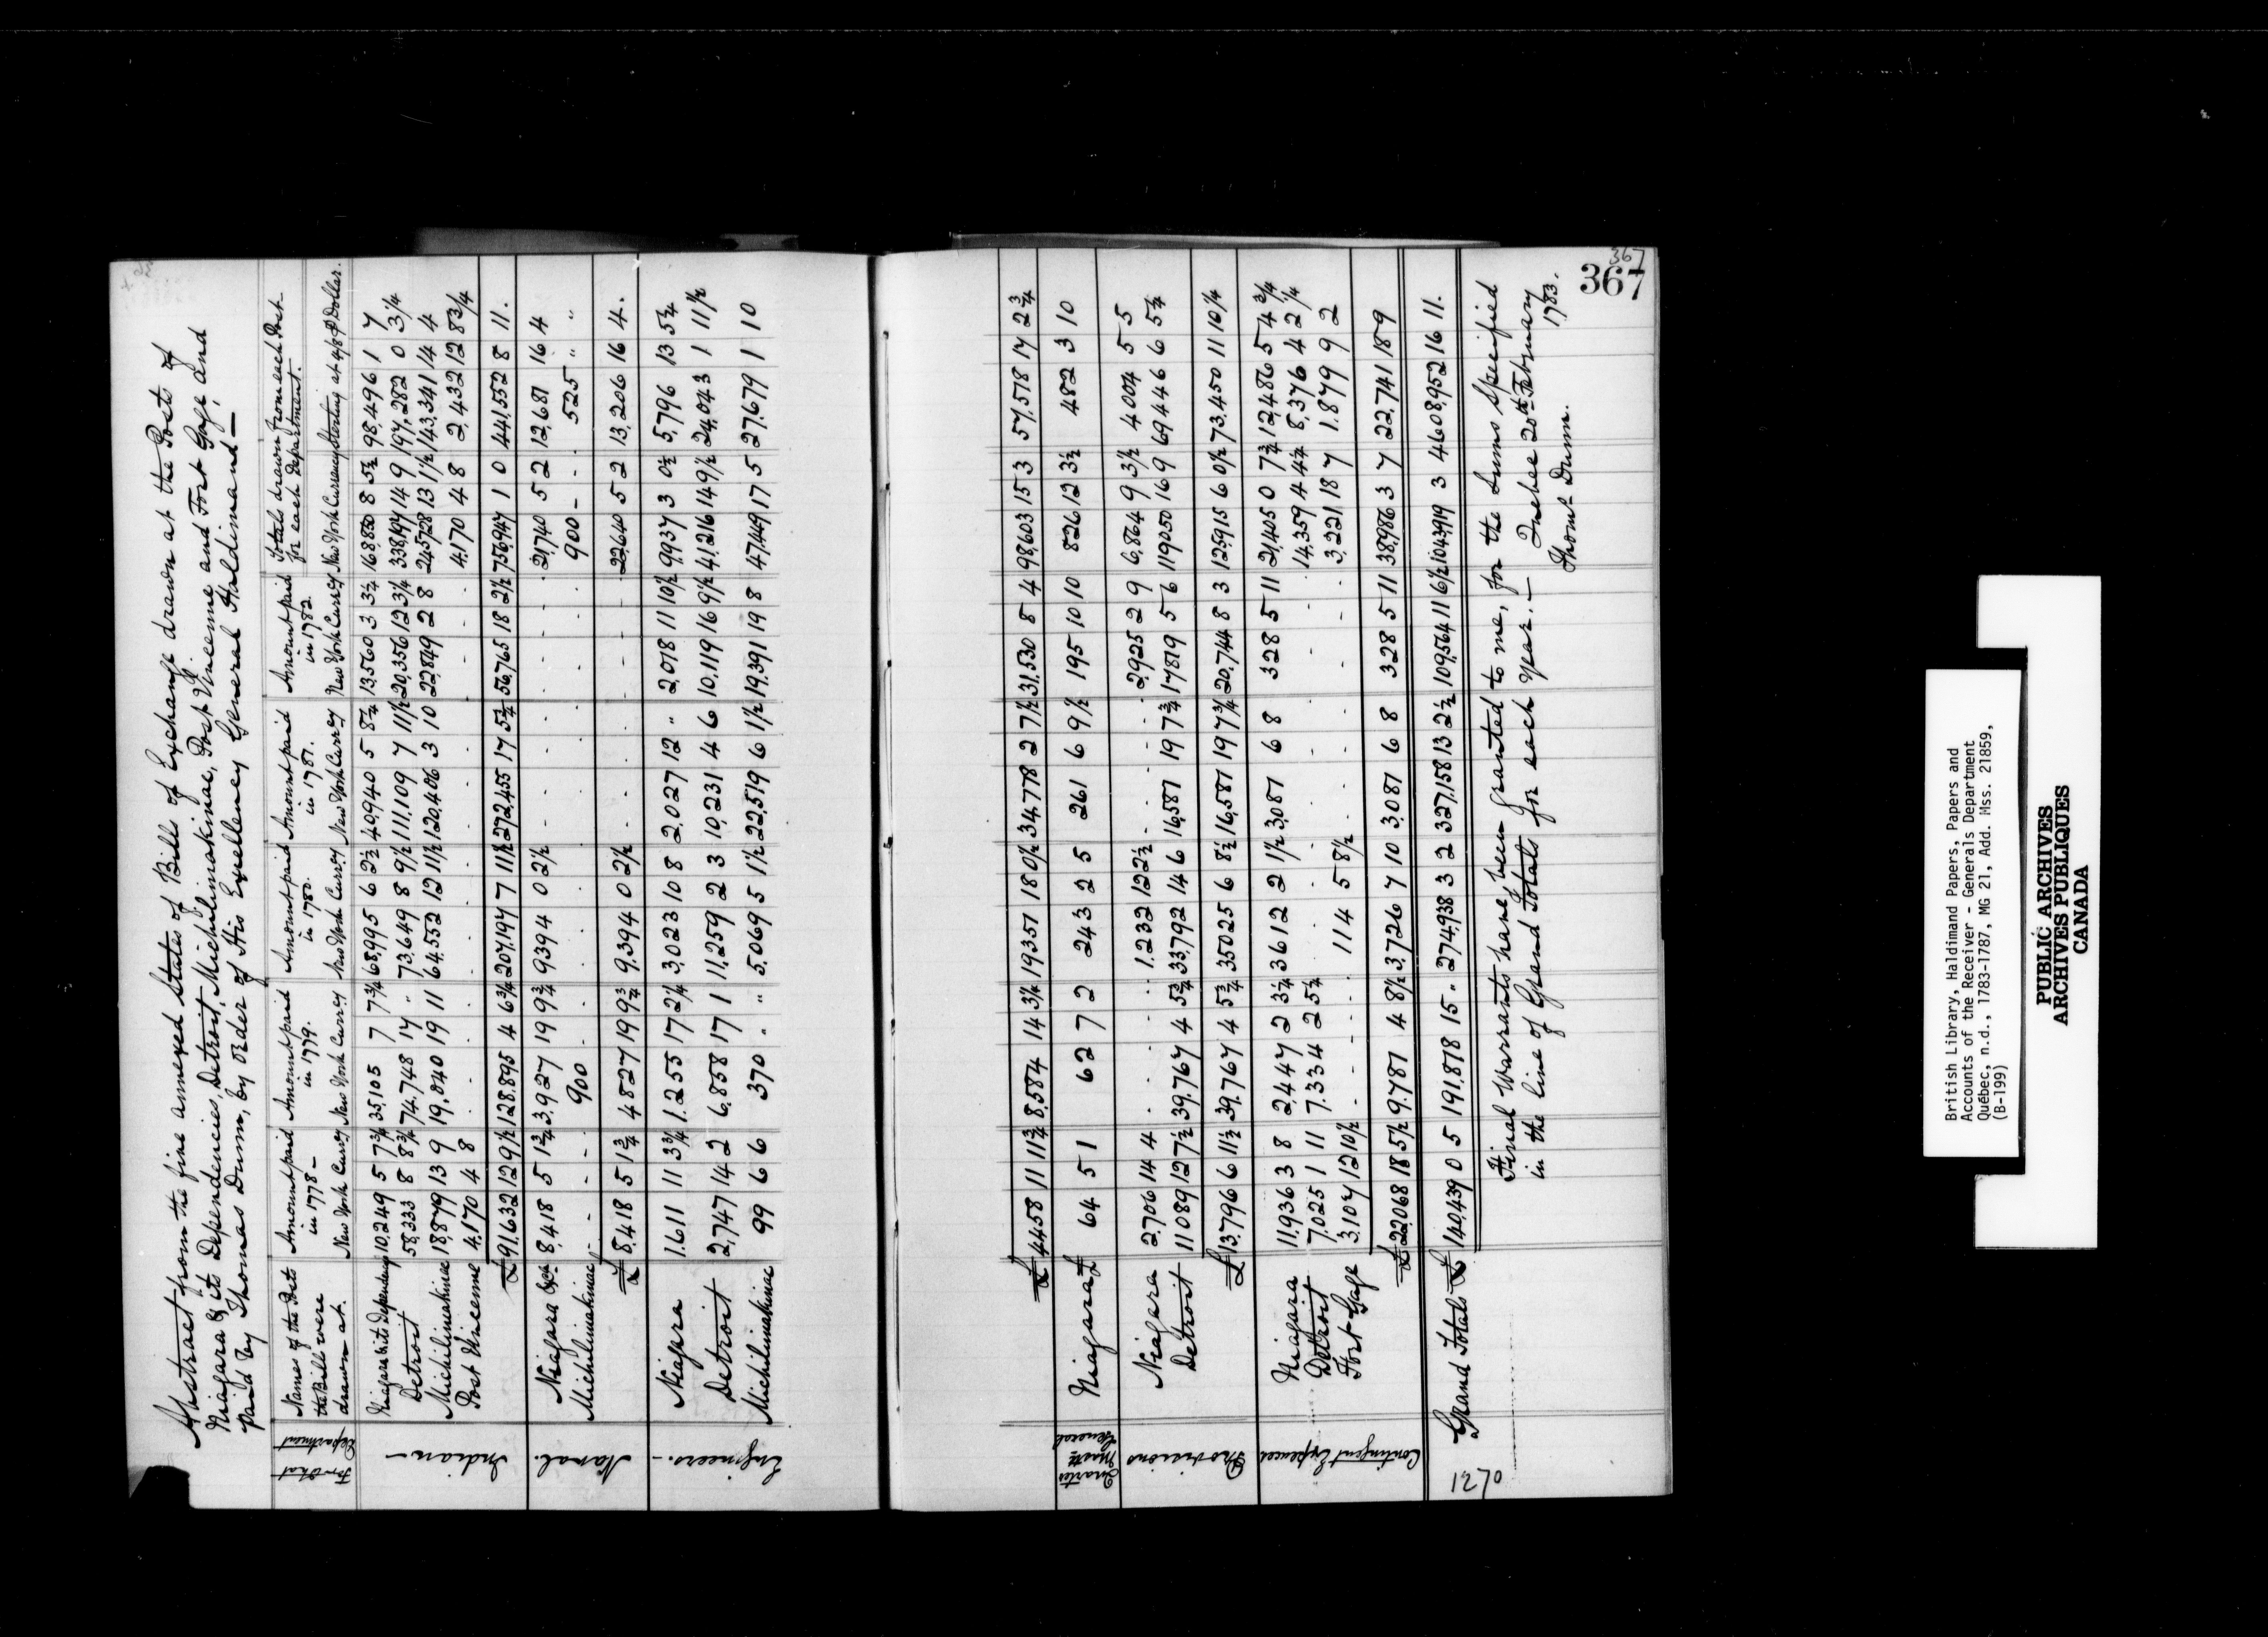 Abstract from the five annexed States of Bills of Exchange drawn at the Posts of
Niagara & its Dependencies, Detroit, Michilimakinac, Post Vinceme and Fort Gage, and
paid by Thomas Dunn, by order of His Excellency General Haldimand —
For What Department
Names of the Posts the Bills were drawn at.
Amount paid in 1778 — New York Curr'cy
Amount paid in 1779. New York Curr'cy
Amount paid in 1780. New York Curr'cy
Amount paid in 1781. New York Curr'cy
Amount paid in 1782. New York Curr'cy
Totals drawn from each Post for each Department. New York Currency Sterling at 4/8 P Dollar.
Indian —
Niagara & its Dependencys 10,249 5 7¾ 35,105 7 7¾ 68,995 6 2½ 40,940 5 8¼ 13,560 3 3¼ 168,850 8 5½ 98,496 1 7
Detroit 58,333 8 8¾ 74,748 17 " 73,649 8 9½ 111,109 7 11½ 20,356 12 3¼ 338,197 14 9 197,282 0 3¼
Michilimakinac 18,879 13 9 19,040 19 11 64,552 12 11½ 120,406 3 10 22,849 2 8 245,728 13 1½ 143,341 14 4
Post Vinceme 4,170 4 8 4,170 4 8 2,432 12 8¾
£ 91,632 12 9½ 128,895 4 6¾ 207,197 7 11½ 272,455 17 5¾ 56,765 18 2½ 756,947 1 0 441,552 8 11.
Naval.
Niagara &ca 8,418 5 1¾ 3,927 19 9¾ 9,394 0 2½ 21,740 5 2 12,681 16 4
Michilimakinac 900 900 525 " "
£ 8,418 5 1¾ 4827 19 9¾ 9,394 0 2½ 22,640 5 2 13,206 16 4.
Engineers. —
Niagara 1,611 11 3¾ 1,255 17 2¼ 3,023 10 8 2,027 12 " 2,018 11 10½ 9,937 3 0½ 5,796 13 5¾
Detroit 2,747 14 2 6,858 17 1 11,259 2 3 10,231 4 6 10,119 16 9½ 41,216 14 9½ 24,043 1 11½
Michilimakinac 99 6 6 370 " " 5,069 5 1½ 22,519 6 1½ 19,391 19 8 47,449 17 5 27,679 1 10
£ 4458 11 11¾ 8,584 14 3¼ 19357 18 0½ 34,778 2 7½ 31,530 8 4 98,603 15 3 57,578 17 2¾
Quarter Mastr General
Niagara £ 64 5 1 62 7 2 243 2 5 261 6 9½ 195 10 10 826 12 3½ 482 3 10
Provisions
Niagara 2,706 14 4 1,232 12 2½ 2,925 2 9 6,864 9 3½ 4004 5 5
Detroit 11089 12 7½ 39,767 4 5¾ 33,792 14 6 16,587 19 7¾ 17819 5 6 119050 16 9 69446 6 5¼
£ 13,796 6 11½ 39,767 4 5¾ 35025 6 8½ 16,587 19 7¾ 20,744 8 3 125,915 6 0½ 73,450 11 10¼
Contingent Expences
Niagara 11,936 3 8 2,447 2 3¼ 3612 2 1½ 3,087 6 8 328 5 11 21,405 0 7¾ 12,486 5 4¾
Detroit 7,025 1 11 7,334 2 5¼ 14,359 4 4¼ 8,376 4 2¼
Fort Gage 3,107 12 10½ 114 5 8½ 3,221 18 7 1,879 9 2
£ 22,068 18 5½ 9,781 4 8½ 3,726 7 10 3,087 6 8 328 5 11 38,986 3 7 22,741 18 9
Grand Totals £ 140,439 0 5 191,878 15 " 274,938 3 2 327,158 13 2½ 109,564 11 6½ 1,043,919 3 4 608,952 16 11.
Final Warrants have been granted to me, for the Sums Specified
in the line of Grand Totals for each year. —
Quebec 20th February 1783.
Thomas Dunn.
1270
367
367
British Library, Haldimand Papers, Papers and
Accounts of the Receiver - Generals Department
Québec, n.d., 1783-1787, MG 21, Add. Mss. 21859,
(B-199)
PUBLIC ARCHIVES
ARCHIVES PUBLIQUES
CANADA